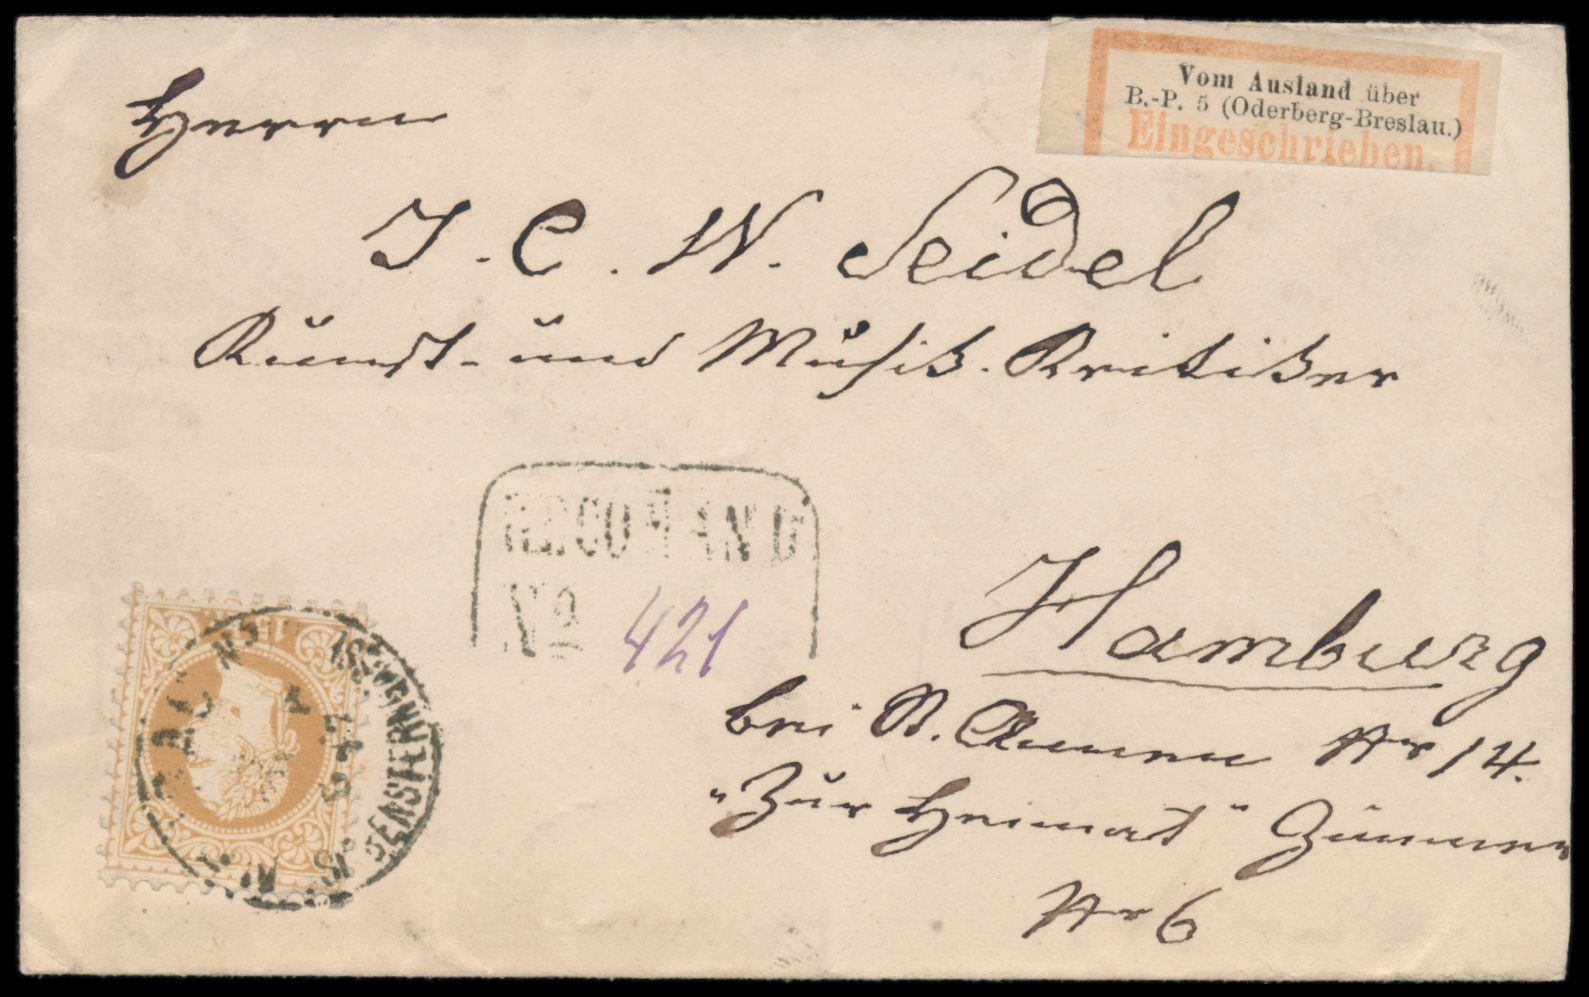 Vom Ausland über
B.-P. 5 (Oderberg-Breslau.)
Eingeschrieben.
Herrn
J. C. W. Seidel
Kunst- und Musik-Kritiker
RECOMAND
No 421
Hamburg
bei St. Annen Nr 14.
"Zur Heimat" Zimmer
Nr 6